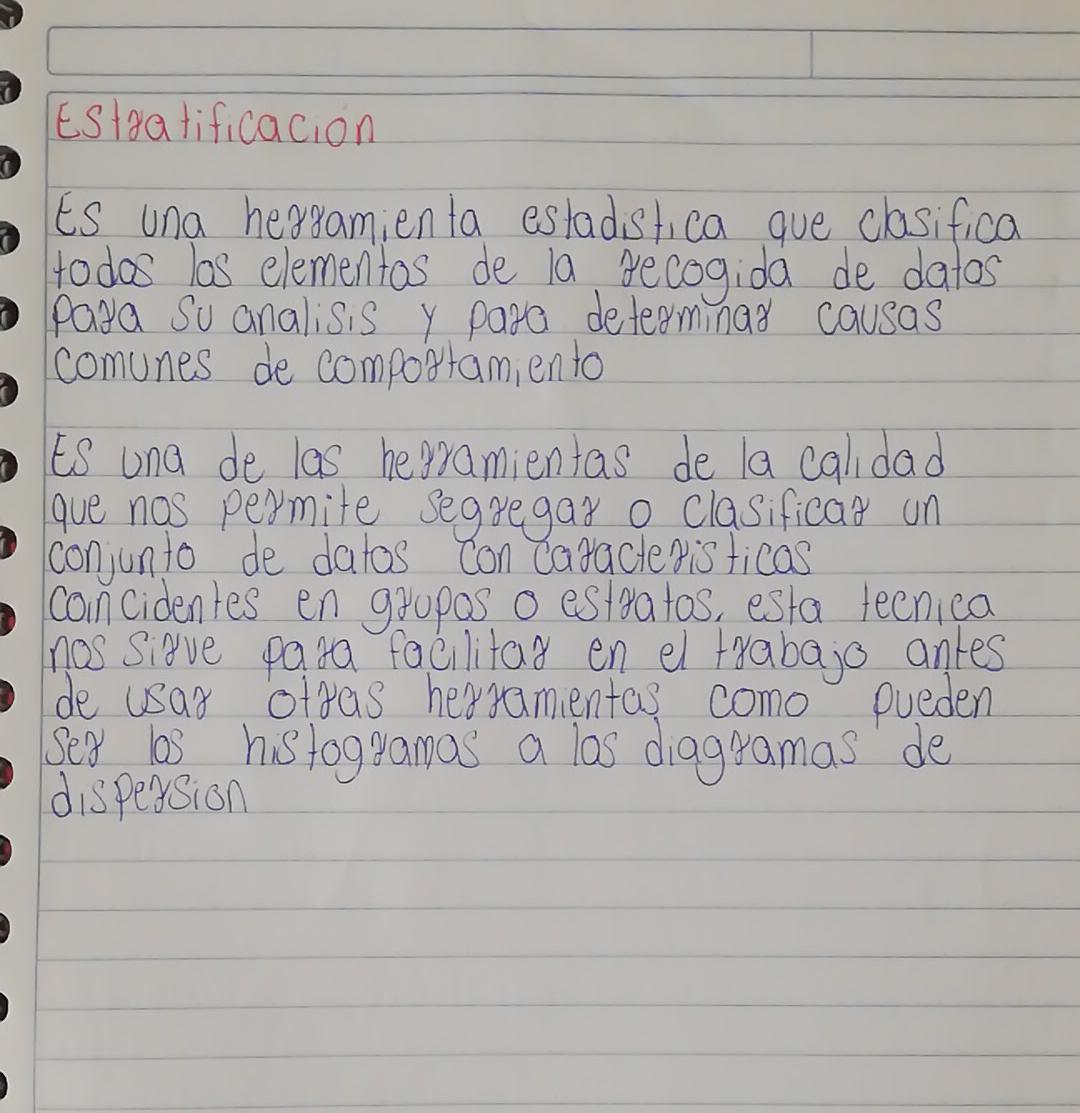 Estratificación
Es una herramienta estadistica que clasifica
todos los elementos de la recogida de datos
para su analisis y para determinar causas
comunes de comportamiento
Es una de las herramientas de la calidad
que nos permite segregar o clasificar un
conjunto de datos con caracteristicas
coincidentes en grupos o estratos, esta tecnica
nos sirve para facilitar en el trabajo antes
de usar otras herramientas como pueden
ser los histogramas a los diagramas de
dispersion